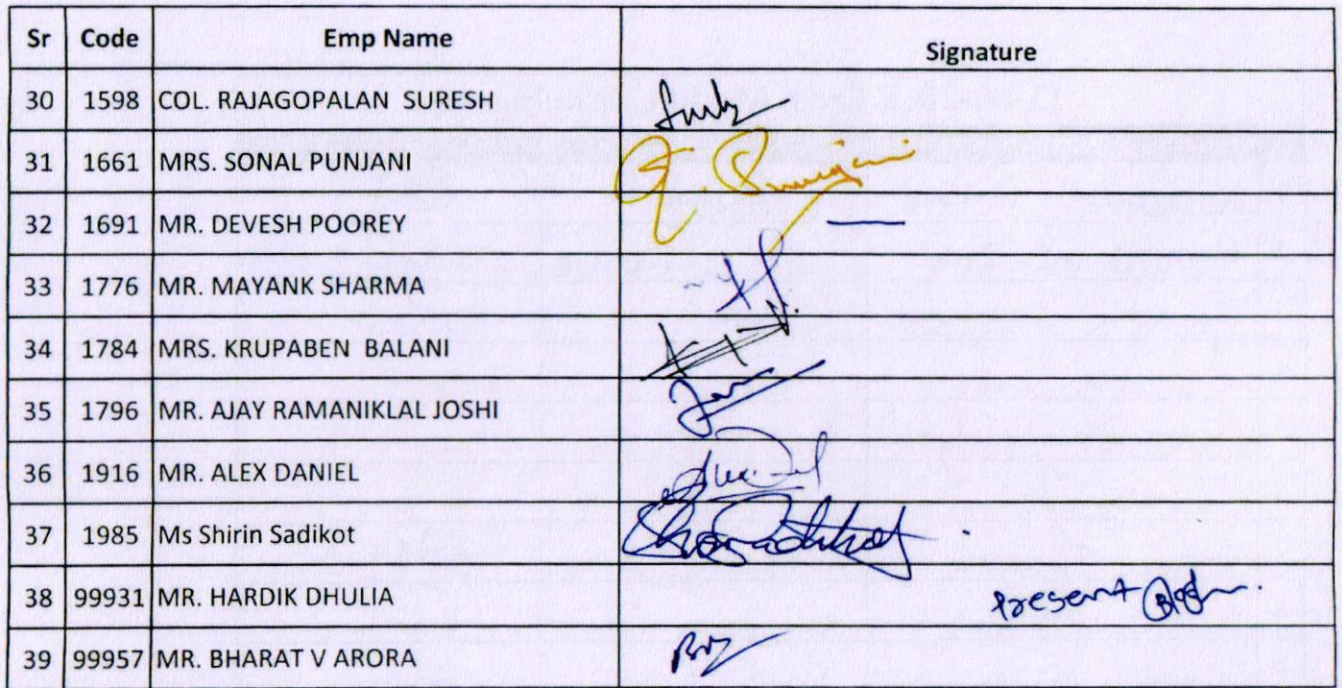 Sr Code Emp Name Signature
30 1598 COL. RAJAGOPALAN SURESH
31 1661 MRS. SONAL PUNJANI
32 1691 MR. DEVESH POOREY
33 1776 MR. MAYANK SHARMA
34 1784 MRS. KRUPABEN BALANI
35 1796 MR. AJAY RAMANIKLAL JOSHI
36 1916 MR. ALEX DANIEL
37 1985 Ms Shirin Sadikot
38 99931 MR. HARDIK DHULIA present
39 99957 MR. BHARAT V ARORA